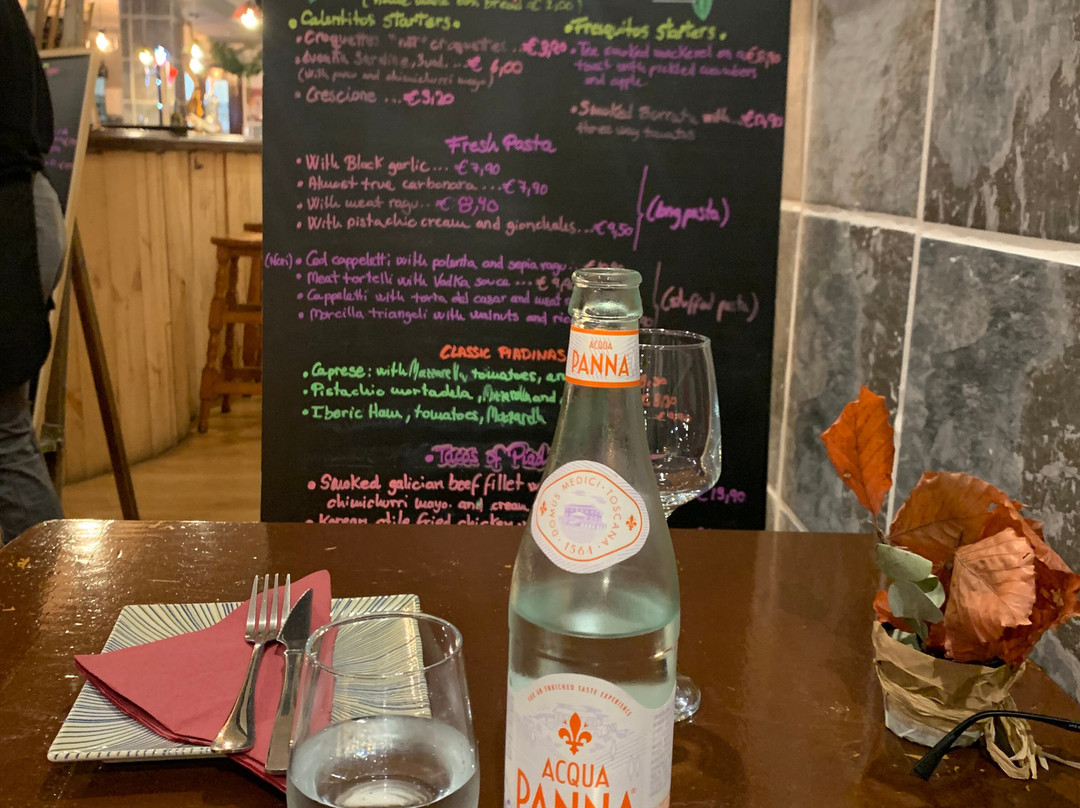 Calentitos starters.
Croquetta "not" croquettes ... €3,90
Sardine, 3ud. ... € 6,00
(with and chimichurri mayo)
Crescione ... €5,20
Fresquitos starters.
The smoked mackerel on a
toast with pickled cucumbers
and apple
Smoked Burrata with ...
three way tomatos
Fresh Pasta
With Black garlic ... € 7,90
Almost true carbonara .... €7,90
With meat ragu .. € 8,40
With pistachio cream and gianchales ... €9,50
(long pasta)
(New) Cod cappeletti with polenta and sepia ragu
Meat tortelli with Vodka sauce ... €
Cappeletti with torta del casar and meat
Morcilla triangoli with walnuts and
(stuffed pasta)
CLASSIC PIADINAS
Caprese: with Mozzarella, tomatoes,
Pistachio mortadela, Mozzarella and
Iberic Ham, tomatoes, Mozzarella
Tacos of
Smoked galician beef fillet
chimichurri mayo. and cream
€13,90
Korean style fried chicken
ACQUA
PANNA
DOMUS · MEDICI · TOSCANA
· 1564 ·
FOR AN ENRICHED TASTE EXPERIENCE
ACQUA
PANNA